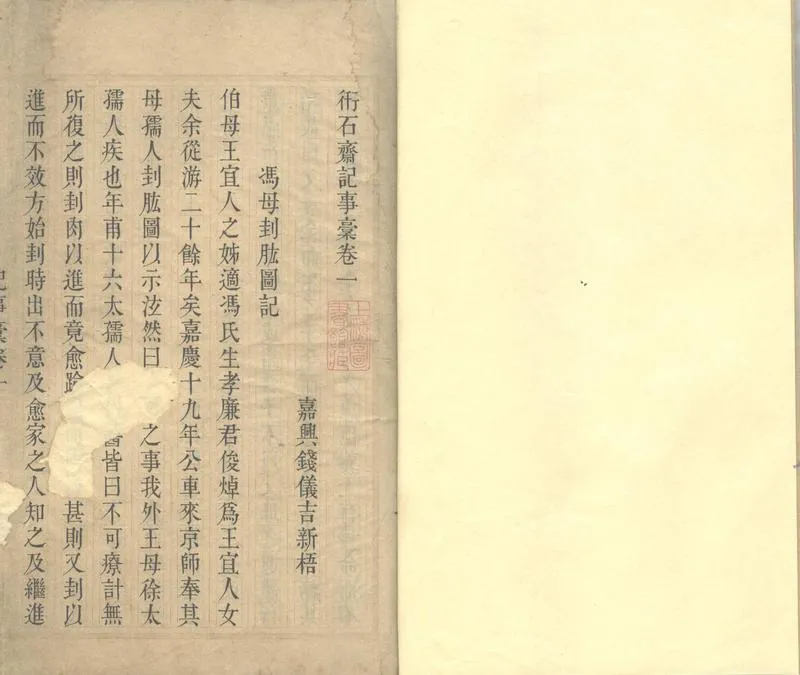 衎石齋記事稾卷一
嘉興錢儀吉新梧
馮母刲肱圖記
伯母王宜人之姊適馮氏生孝廉君俊焯爲王宜人女
夫余從游二十餘年矣嘉慶十九年公車來京師奉其
母孺人刲肱圖以示泫然曰之事我外王母徐太
孺人疾也年甫十六太孺人皆曰不可療計無
所復之則刲肉以進而竟愈踰甚則又刲以
進而不效方始刲時出不意及愈家之人知之及繼進
記事稾卷一
上海圖書館藏